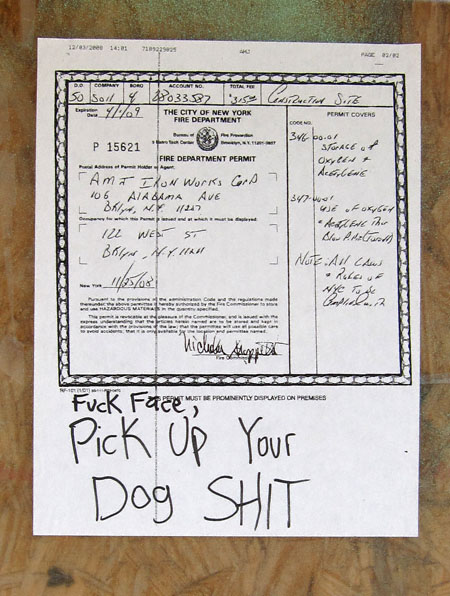 12/03/2008 14:01 7189229025 AMJ PAGE 02/02
D.O. COMPANY BORO ACCOUNT NO. TOTAL FEE
50 4 28033587 CONSTRUCTION SITE
Expiration Date 4/1/09
THE CITY OF NEW YORK
FIRE DEPARTMENT
PERMIT COVERS
CODE NO.
Bureau of Fire Prevention
P 15621
9 Metro Tech Center Brooklyn, N.Y. 11201-3857
FIRE DEPARTMENT PERMIT
Postal Address of Permit Holder or Agent.
AMJ IRON WORKS CORP
106 ALABAMA AVE
BKLYN, N.Y. 11207
Occupancy for which this Permit is issued and at which it must be displayed.
122 WEST ST
BKLYN, N.Y.
New York 11/25/08
STORAGE OF
OXYGEN &
ACETYLENE
USE OF OXYGEN
& ACETYLENE
NOTE: ALL LAWS
& RULES OF
NYC TO BE
Pursuant to the provisions of the administration Code and the regulations made
thereunder the above permittee is hereby authorized by the Fire Commissioner to store
and use HAZARDOUS MATERIALS in the quantity specified.
This permit is revocable at the pleasure of the Commissioner, and is issued with the
express understanding that the articles herein named are to be stored and kept in
accordance with the provisions of the law; that the permittee will use all possible care
to avoid accidents; that it is only available for the location and permittee named.
Fire Commissioner
THIS PERMIT MUST BE PROMINENTLY DISPLAYED ON PREMISES
Fuck Face,
Pick Up Your
Dog SHIT